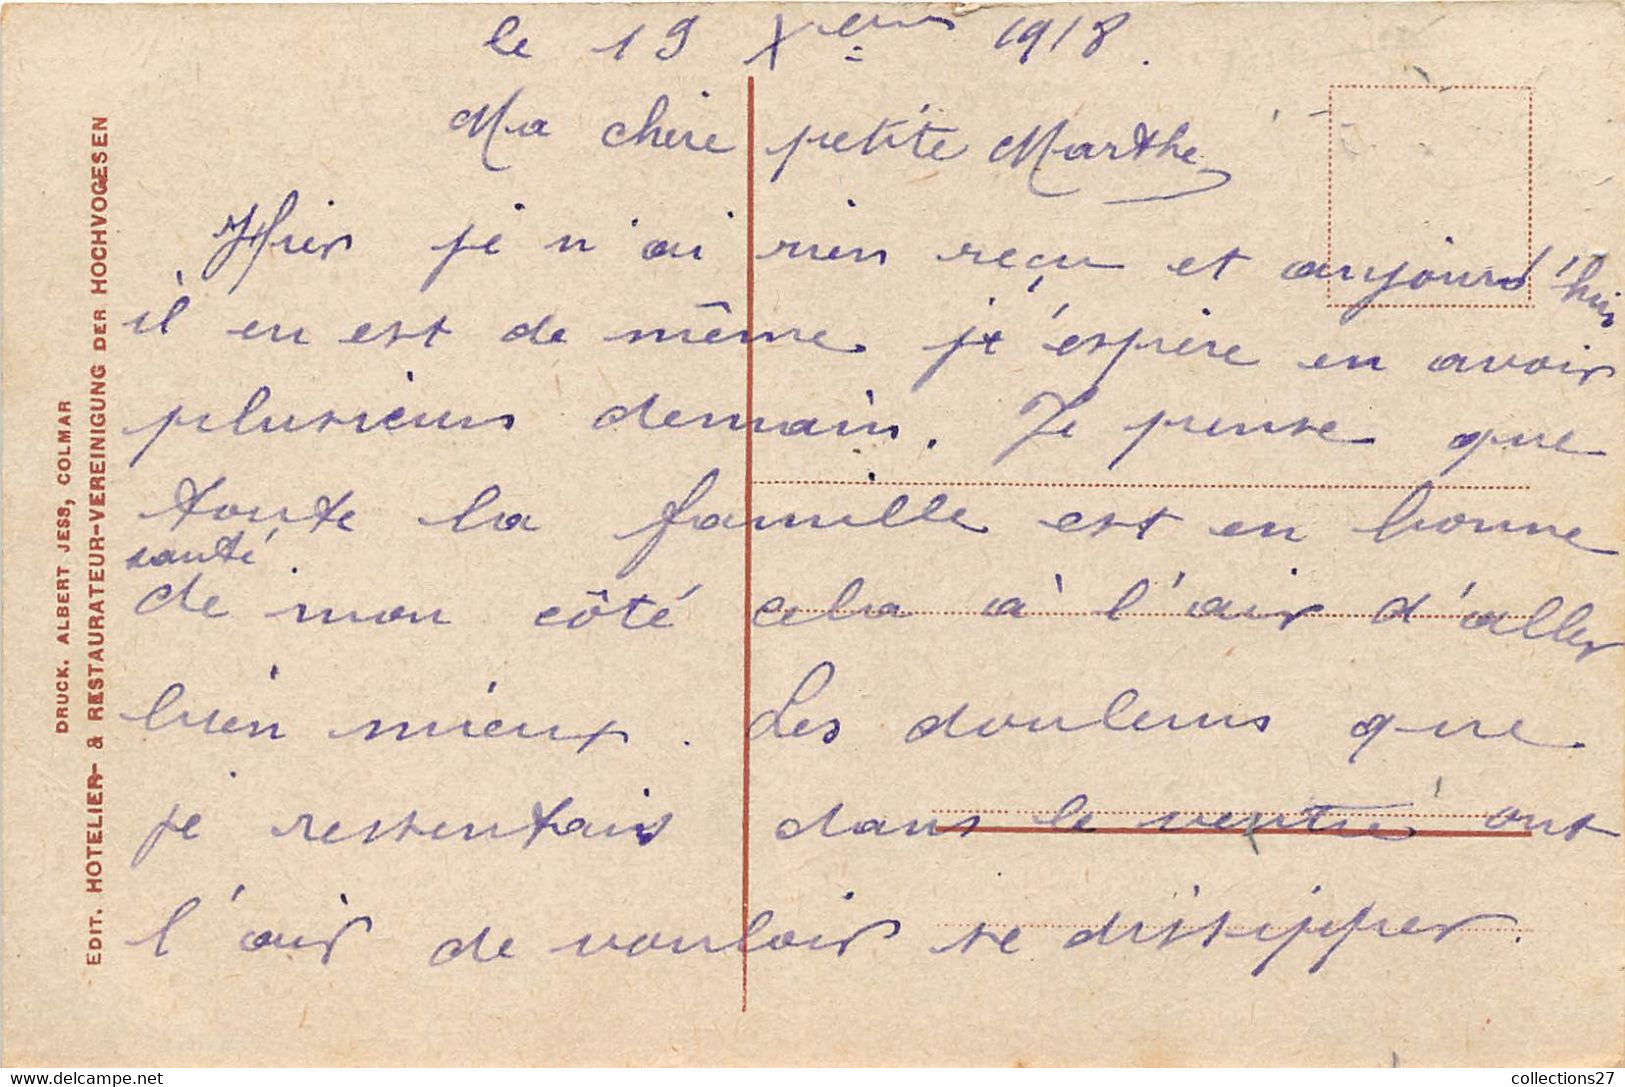 le 19 Xbre 1918.
Ma chère petite Marthe
Hier je n'ai rien reçu et aujourd'hui
il en est de même je t'espère en avoir
plusieurs demain. Je pense que
toute la famille est en bonne
santé
de mon côté cela à l'air d'aller
bien mieux. Les douleurs que
je ressentais dans le ventre ont
l'air de vouloir se dissipper.
DRUCK. ALBERT JESS, COLMAR
EDIT. HOTELIER- & RESTAURATEUR-VEREINIGUNG DER HOCHVOGESEN
collections27